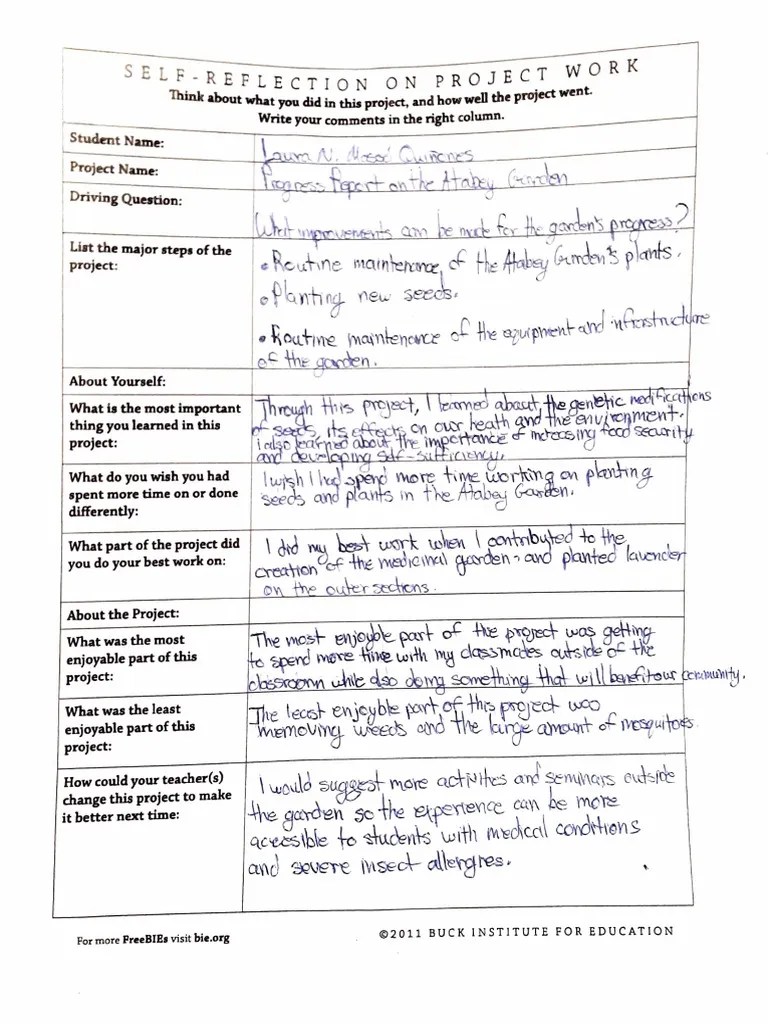 SELF-REFLECTION ON PROJECT WORK
Think about what you did in this project, and how well the project went.
Write your comments in the right column.
Student Name:
Laura N. Quiñones
Project Name:
Progress Report on the Atabey Garden
Driving Question:
What improvements can be made for the garden's progress?
List the major steps of the
project:
• Routine maintenance of the Atabey Garden's plants.
• Planting new seeds.
• Routine maintenance of the equipment and infrastructure
of the garden.
About Yourself:
What is the most important
thing you learned in this
project:
Through this project, I learned about the genetic modifications
of seeds, its effects on our heath and the environment.
I also learned about the importance of increasing food security
and developing self-sufficiency.
What do you wish you had
spent more time on or done
differently:
I wish I had spend more time working on planting
seeds and plants in the Atabey Garden.
What part of the project did
you do your best work on:
I did my best work when I contributed to the
creation of the medicinal garden and planted lavender
on the outer sections.
About the Project:
What was the most
enjoyable part of this
project:
The most enjoyble part of the project was getting
to spend more time with my classmades outside of the
classroom while also doing something that will benefit our community.
What was the least
enjoyable part of this
project:
The least enjoyble part of this project was
memoving weeds and the large amount of mosquitoes.
How could your teacher(s)
change this project to make
it better next time:
I would suggest more activities and seminars outside
the garden so the experience can be more
accesible to students with medical conditions
and severe insect allergies.
For more FreeBIEs visit bie.org
©2011 BUCK INSTITUTE FOR EDUCATION